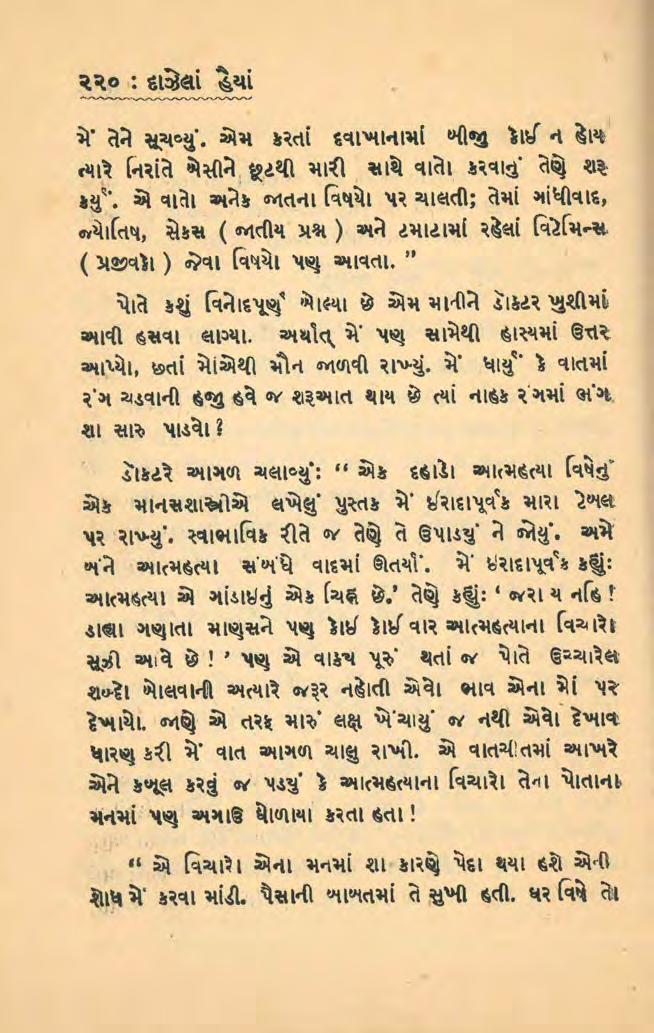 ૨૨૦ : દાઝેલાં હૈયાં
મેં તેને સૂચવ્યું. એમ કરતાં દવાખાનામાં બીજું કોઈ ન હોય
ત્યારે નિરાંતે બેસીને છૂટથી મારી સાથે વાતો કરવાનું તેણે શરૂ
કર્યું. એ વાતો અનેક જાતના વિષયો પર ચાલતી; તેમાં ગાંધીવાદ,
જ્યોતિષ, સેકસ ( જાતીય પ્રશ્ન ) અને ટમાટામાં રહેલાં વિટેમિન્સ
( પ્રજીવકો ) જેવા વિષયો પણ આવતા. ”
પોતે કશું વિનોદપૂર્ણ બોલ્યા છે એમ માનીને ડૉકટર ખુશીમાં
આવી હસવા લાગ્યા. અર્થાત્ મેં પણ સામેથી હાસ્યમાં ઉત્તર
આપ્યો, છતાં મોંએથી મૌન જાળવી રાખ્યું. મેં ધાર્યું કે વાતમાં
રંગ ચડવાની હજુ હવે જ શરૂઆત થાય છે ત્યાં નાહક રંગમાં ભંગ
શા સારુ પાડવો ?
ડૉકટરે આગળ ચલાવ્યું: “ એક દહાડો આત્મહત્યા વિષેનું
એક માનસશાસ્ત્રીએ લખેલું પુસ્તક મેં ઈરાદાપૂર્વક મારા ટેબલ
પર રાખ્યું. સ્વાભાવિક રીતે જ તેણે તે ઉપાડયું ને જોયું. અમે
બંને આત્મહત્યા સંબંધે વાદમાં ઊતર્યાં. મેં ઈરાદાપૂર્વક કહ્યું:
આત્મહત્યા એ ગાંડાઈનું એક ચિહ્ન છે.’ તેણે કહ્યું: ‘ જરા ય નહિ !
ડાહ્યા ગણાતા માણસને પણ કોઈ કોઈ વાર આત્મહત્યાના વિચારો
સૂઝી આવે છે ! ’ પણ એ વાકય પૂરું થતાં જ પોતે ઉચ્ચારેલ
શબ્દો બોલવાની અત્યારે જરૂર નહોતી એવો ભાવ એના મોં પર
દેખાયો. જાણે એ તરફ મારું લક્ષ ખેંચાયું જ નથી એવો દેખાવ
ધારણ કરી મેં વાત આગળ ચાલુ રાખી. એ વાતચીતમાં આખરે
એને કબૂલ કરવું જ પડયું કે આત્મહત્યાના વિચારો તેના પોતાના
મનમાં પણ અગાઉ ઘોળાયા કરતા હતા !
“ એ વિચારો એના મનમાં શા કારણે પેદા થયા હશે એની
શોધ મેં કરવા માંડી. પૈસાની બાબતમાં તે સુખી હતી. ઘર વિષે તો